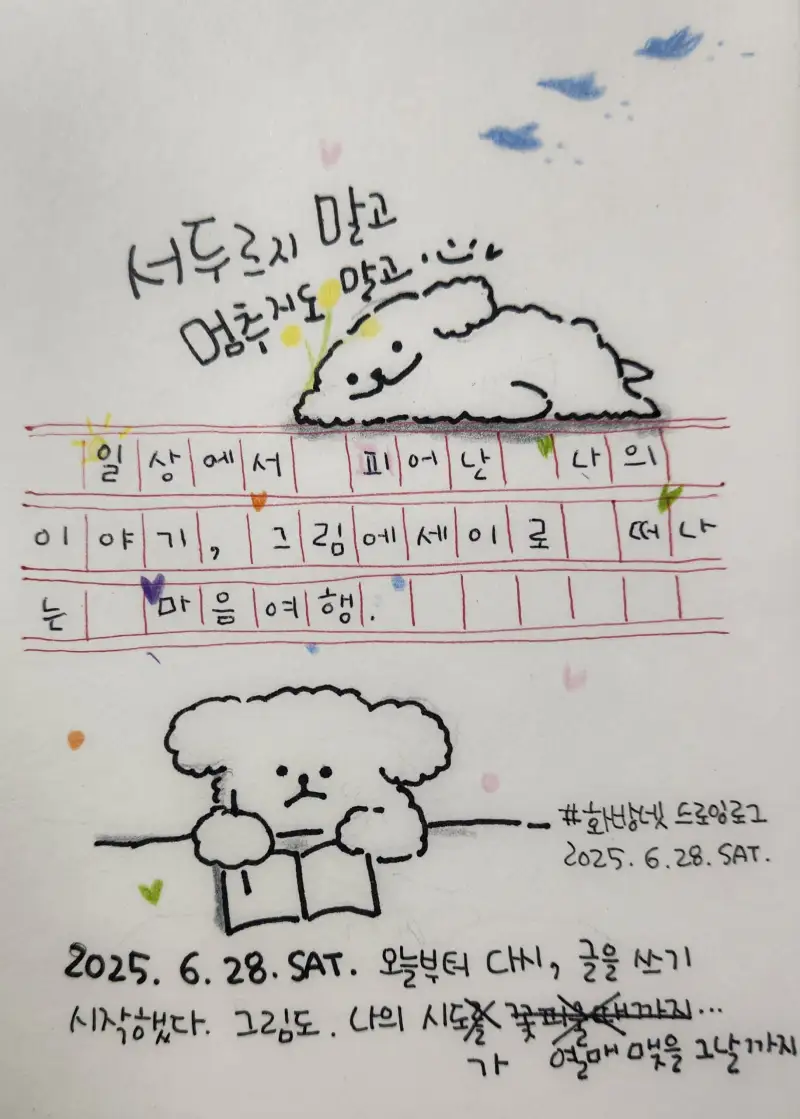 서두르지 말고
멈추지도 말고
일상에서 피어난 나의
이야기, 그림에세이로 떠나
는 마음여행.
#화방넷 드로잉로그
2025. 6. 28. SAT.
2025. 6. 28. SAT. 오늘부터 다시, 글을 쓰기
시작했다. 그림도. 나의 시도를 꽃피울 때까지...
가 열매 맺을 그날까지